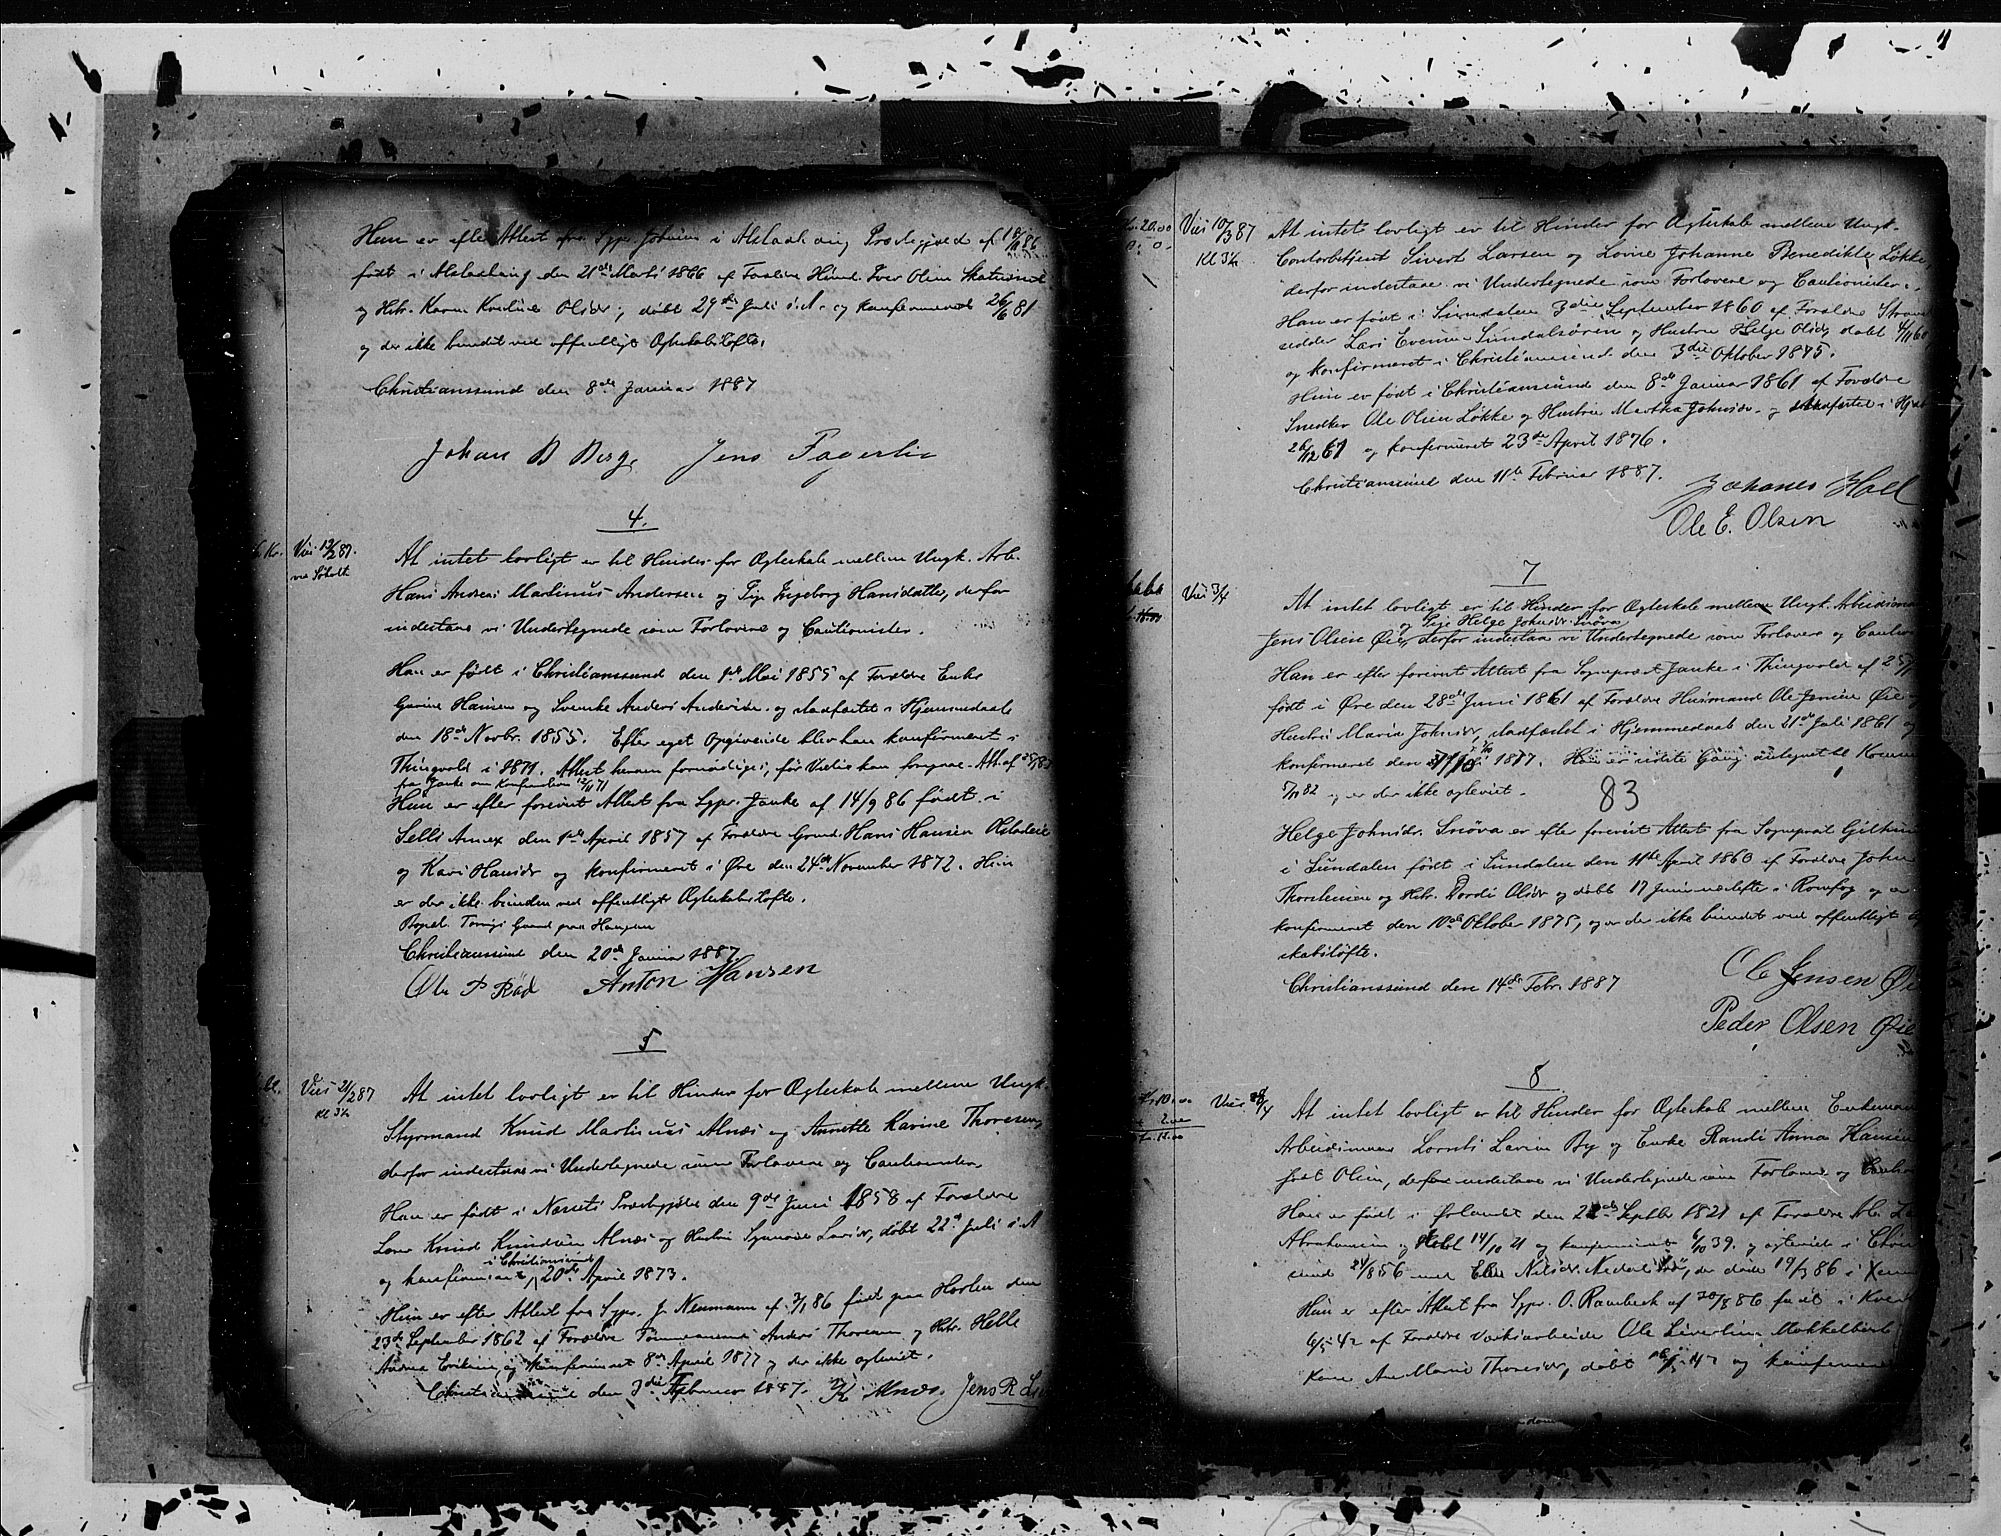 Hun er efter Attest fra Sgpr. Johnsen i Alstadhaug Præstegjeld af 18/11 86
født i Alstadhaug den 21de Marts 1866 af Forældre Husmd. Iver Olsen
og Hstr. Karen Kristine Olsdr, døbt 29de Juli s. A. og konfirmeret 26/6 81
og der ikke bundet ved offentligt Ægteskabsløfte.
Christianssund den 8de Januar 1887
Johan B Berg, Jens Fagerli
4.
Kr. Viet 12/2 87.
At intet lovligt er til Hinder for Ægteskab mellem Ungk. Arb.
Hans Andreas Martinus Andersen og Pige Ingeborg Hansdatter, derfor
indestaae vi Undertegnede som Forlovere og Cautionister.
Han er født i Christianssund den 1ste Mai 1855 af Forældre Enke
Gurine Hansen og Svenske Anders Andersen og stadfæstet i Hjemmedaab
den 18de Novbr. 1855. Efter eget Opgivende blev han konfirmeret i
Thingvold i 1871. Attest herom fornødiges, før Vielse kan foregaae. Att. af
fra Janke om Konfirmation 12/11 71
Hun er efter forevist Attest fra Sgpr. Janke af 14/9 86 født i
Sells Annex den 1ste April 1857 af Forældre Grmd. Hans Hansen
og Kari Hansdr og konfirmeret i Øre den 24de November 1872. Hun
er der ikke bunden ved offentligt Ægteskabsløfte.
Bopæl:
Christianssund den 20de Januar 1887.
Ole P Rød Anton Hansen
5
Viet 21/2 87
Kl 3½
At intet lovligt er til Hinder for Ægteskab mellem Ungk.
Styrmand Knud Martinus Alnæs og Annette Karine Thoresen,
derfor indestaae vi Undertegnede som Forlovere og Cautionister.
Han er født i Næssets Præstegjeld den 9de Juni 1858 af Forældre
Knud Knudsen Alnæs og Hustru Larsdr, døbt 22de Juli s. A
i Christianssund
og konfirmeret 20de April 1873.
Hun er efter Attest fra Sgpr. J. Neumann af 3/1 86 født paa Horten den
23de September 1862 af Forældre Tømmermand Anders Thoresen og Hstr. Helle
Andrea Eriksen, og konfirmeret 8de April 1877 og der ikke ægteviet.
Christianssund den 3die Februar 1887. K Alnæs. Jens R
20.00
Viet 10/3 87
Kl 3½
At intet lovligt er til Hinder for Ægteskab mellem Ungk.
Contorbetjent Sivert Larsen og Lovise Johanne Benedikte Løkke,
derfor indestaae vi Undertegnede som Forlovere og Cautionister.
Han er født i Sundalen 3die September 1860 af Forældre
Lars Evensen Sundalsøren og Hustru Helge Olsdr, døbt 4/11 60
og konfirmeret i Christianssund den 3die Oktober 1875.
Hun er født i Christianssund den 8de Januar 1861 af Forældre
Snedker Ole Olsen Løkke og Hustru Martha Johnsdr. og stadfæstet i
26/12 61 og konfirmeret 23de April 1876.
Christianssund den 11te Februar 1887.
Johanes Hoel
Ole E. Olsen
7
Viet 3/4
At intet lovligt er til Hinder for Ægteskab mellem Ungk. Arbeidsmand
og Pige Helge Johnsdr. Snøva
Jens Olsen Øie, derfor indestaa vi Undertegnede som Forlovere og
Han er efter forevist Attest fra Sogneprest Janke i Thingvold af 25/
født i Øre den 28de Juni 1861 af Forældre Husmand Ole Jensen Øie
Hustru Marie Johnsdr, stadfæstet i Hjemmedaab den 21de Juli 1861 og
konfirmeret den 7/10 1877. Han er sidste Gang antegnet til
5/11 82 og er der ikke ægteviet.
83
Helge Johnsdr. Snøva er efter forevist Attest fra Sogneprest
i Sundalen født i Sundalen den 11te April 1860 af Forældre John
Thorstensen og Hstr. Dordi Olsdr og døbt 17 Juni næstefter i Romfog og er
konfirmeret den 10de Oktober 1875, og er der ikke bundet ved offentligt
skabsløfte.
Christianssund den 14de Febr. 1887
Ole Jensen Øie
Peder Olsen Øie
8
Kr. 10.00
2.00
12.00
Viet
At intet lovligt er til Hinder for Ægteskab mellem Enkemand
Arbeidsmand Lorents Larsen By og Enke Randi Anna Hansen
født Olsen, derfor indestaae vi Undertegnede som Forlovere og
Han er født i Ørlandet den 22de Septbr 1821 af Forældre Arb.
Abrahamsen og 14/10 21 og konfirmeret 6/10 39. og ægteviet i
sund 24/8 56 med Nilsdr. der døde 19/3 86 i
Hun er efter Attest fra Sgpr. O. Rambeck af 30/8 86 født i
6/5 42 af Forældre Værksarbeider Ole Mokkelbost
Kone Ane Marie Thoresdr, døbt og konfirmeret